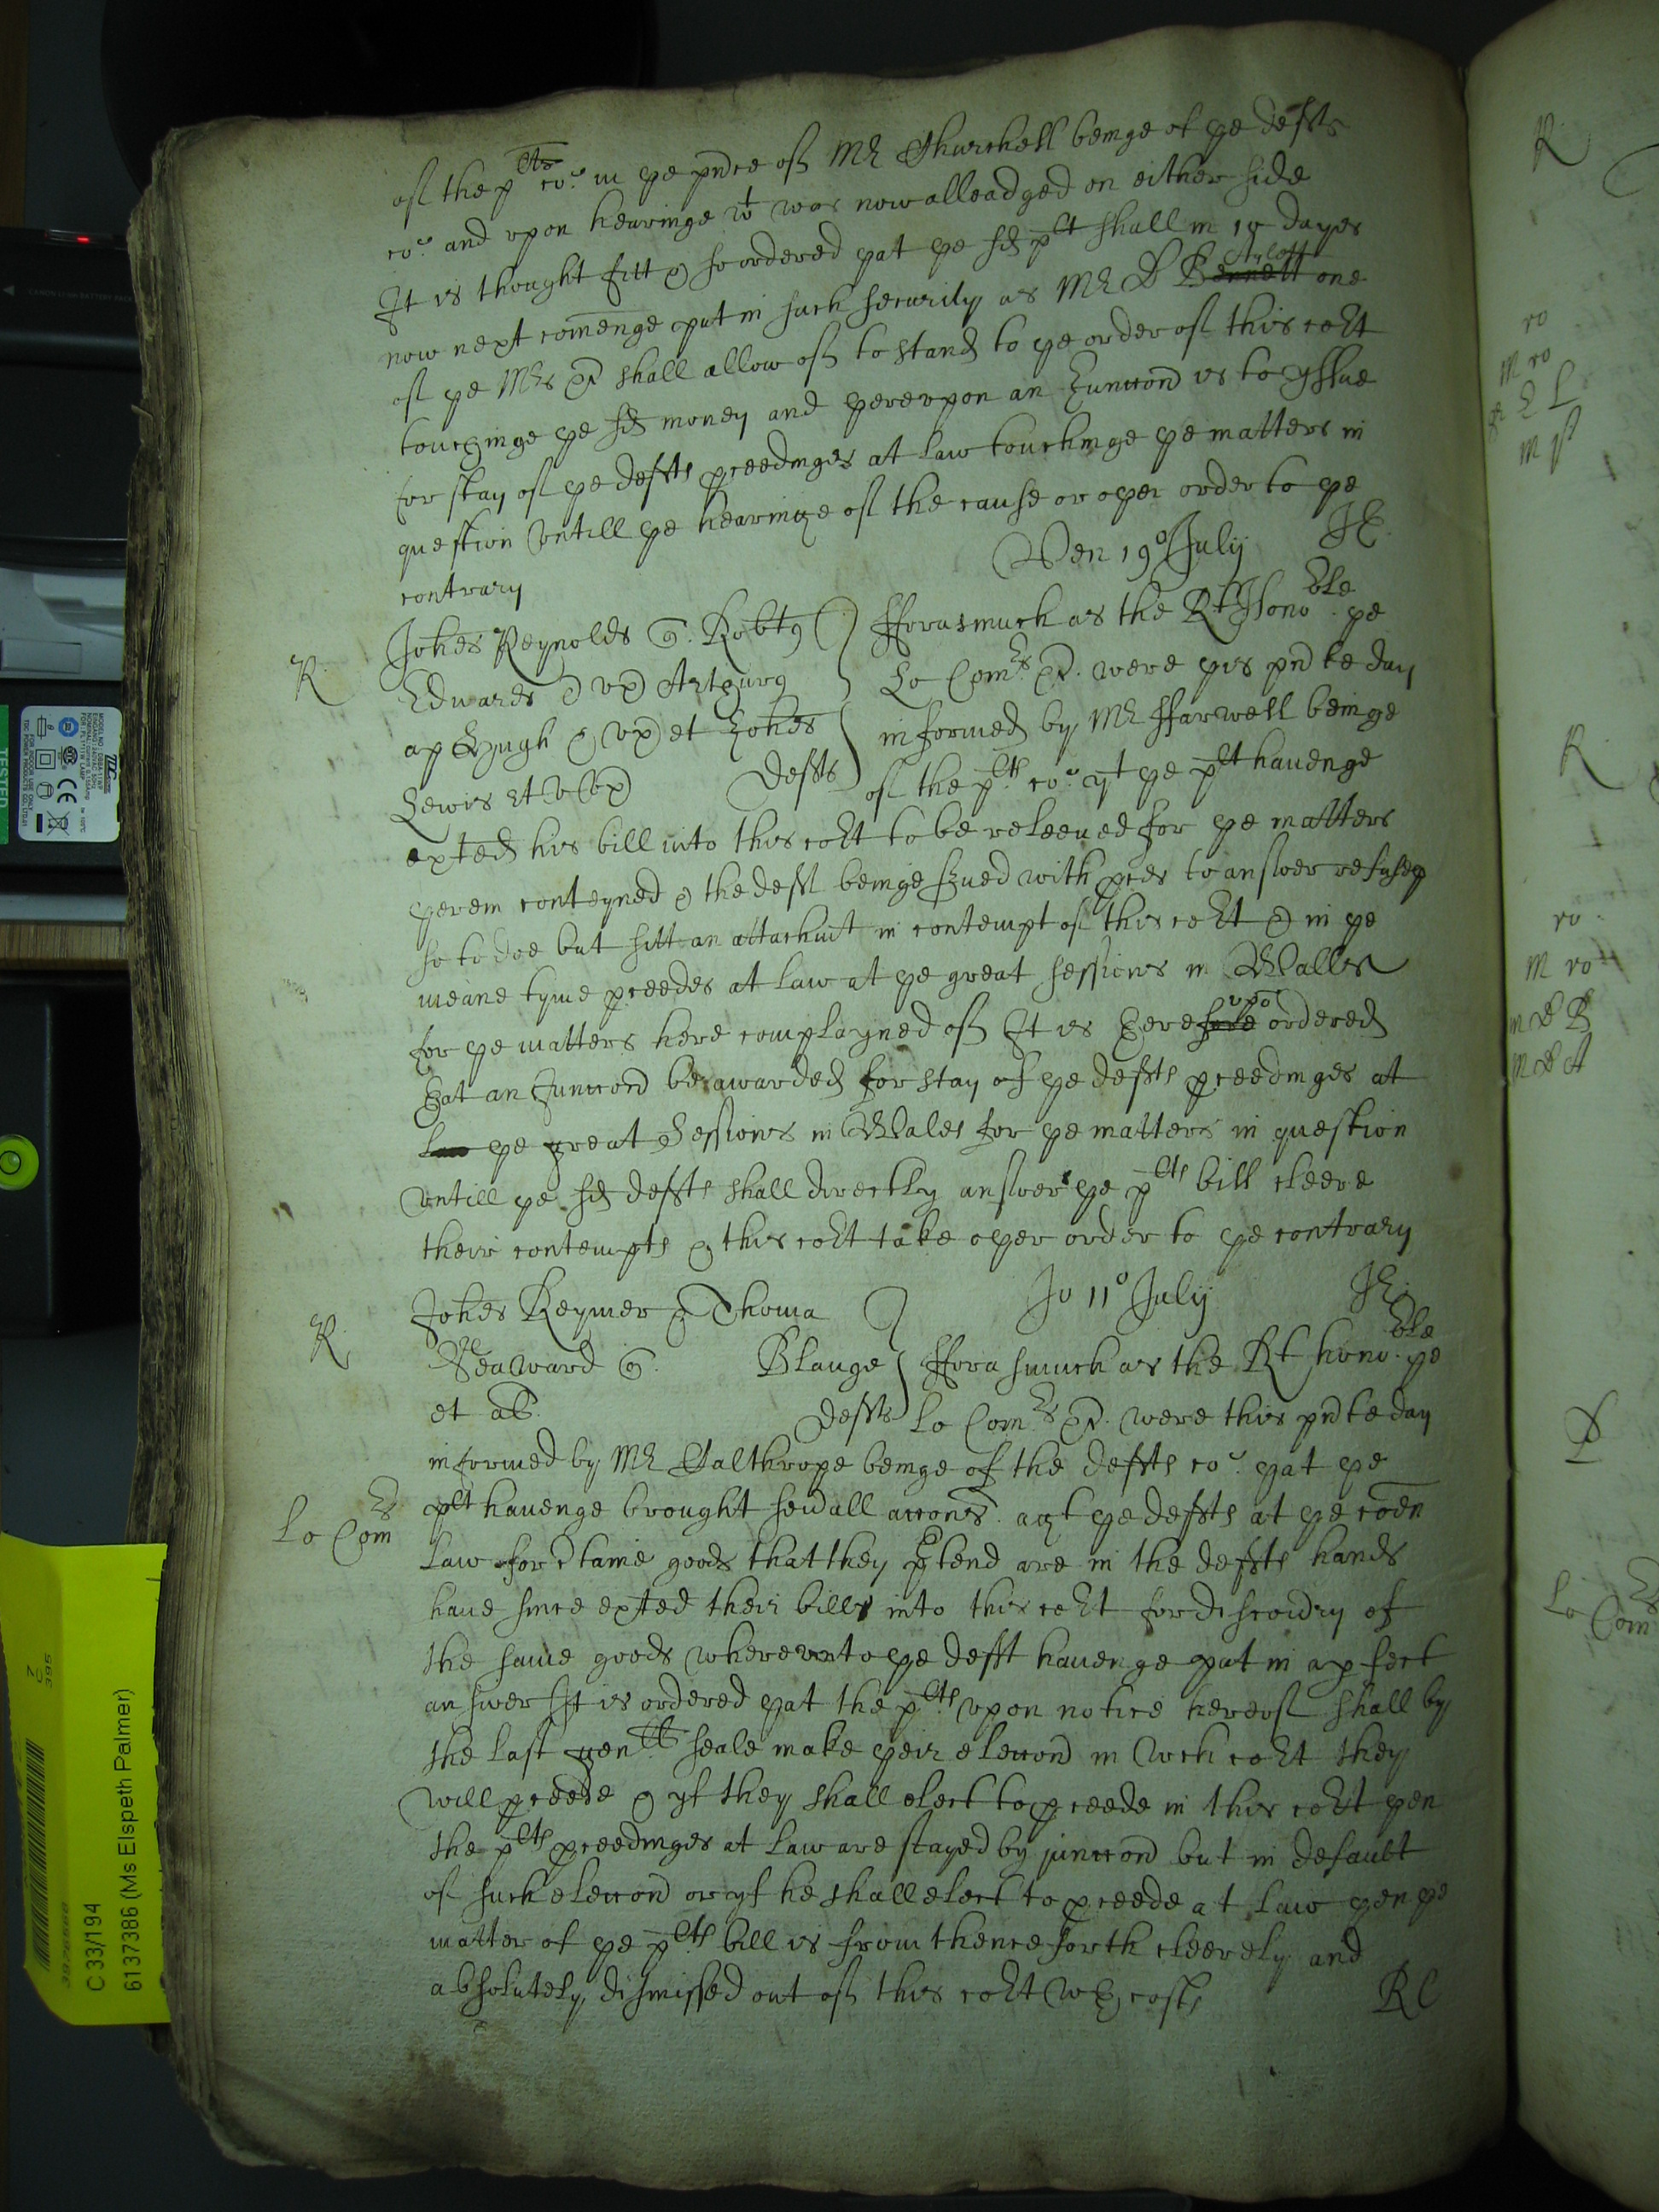 of the plts co: in ye pnce of Mr Churchell beinge of ye defts
co: and vpon hearinge wt was now alleadged on either side
It is thought fitt & so ordered yat ye sd plt shall in 10 dayes
now next comenge put in such security as Mr D Bennett Aylott one
of ye Mrs &c shall allow of to stand to ye order of this cort
touchinge ye sd money and yerevpon an Iunccon is to yssue
for stay of ye defts pceedinges at law touchinge ye matters in
question vntill ye hearinge of the cause or oyer order to ye
contrary
Ven 19o July JE.
R. Johes Reynolds q. Robtus
Edwards & vx Arthurus
ap Hugh & vx et Johes
Lewis et vx defts
fforasmuch as the Rt Honoble. ye
Lo Comrs &c. were yis pnte day
informed by Mr ffarwell beinge
of the plts co: yt ye plt havenge
exted his bill into this cort to be releeued for ye matters
yerein conteyned & the deft beinge served with pces to answer refuseth
so to doe but sitt an attachmt in contempt of this cort & in ye
meane tyme pceedes at law at ye great sessions in Walles
for ye matters here complayned of It is therefore vpo ordered
that an Iunccon be awarded for stay of ye defts pceedinges at
law ye great Sessions in Wales for ye matters in question
vntill ye sd defts shall directly answer ye plts bill cleere
their contempts & this cort take oyer order to ye contrary
Jo 11o July JE.
R. Johes Keymer & Thoma
Seaward q. Blauge
et al. defts
fforasmuch as the Rt hono:ble ye
Lo Comrs &c. were this pnte day
informed by Mr Calthrope beinge of the defts co: yat ye
Lo Comrs
plt havenge brought seuall accons. agt ye defts at ye coen
law for ctaine goods that they ptend are in the defts hands
haue since exted their bills into this cort for discouery of
the same goods wherevnto ye deft havenge put in a pfect
answer It is ordered yat the plts vpon notice hereof shall by
the last genll seale make yeir eleccon in wch cort they
will pceede & yf they shall elect to pceede in this cort yen
the plts pceedinges at law are stayed by junccon but in default
of such eleccon or yf he shall elect to pceede at law yen ye
matter of ye plts bill is from thenceforth cleerely and
absolutely dismissed out of this cort wth costs
RC
R
ro
M ro
M
R
ro
M ro
M D B
M D A
Lo Comrs
C 33/194
6137386 (Ms Elspeth Palmer)
TESTED